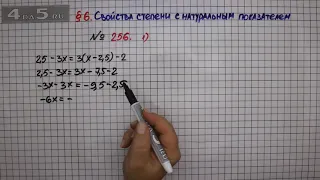 4PA5.RU
§6. Свойства степени с натуральным показателем
№ 256. 1)
2,5 - 3x = 3(x - 2,5) - 2
2,5 - 3x = 3x - 7,5 - 2
-3x - 3x = -9,5 - 2,5
-6x = -